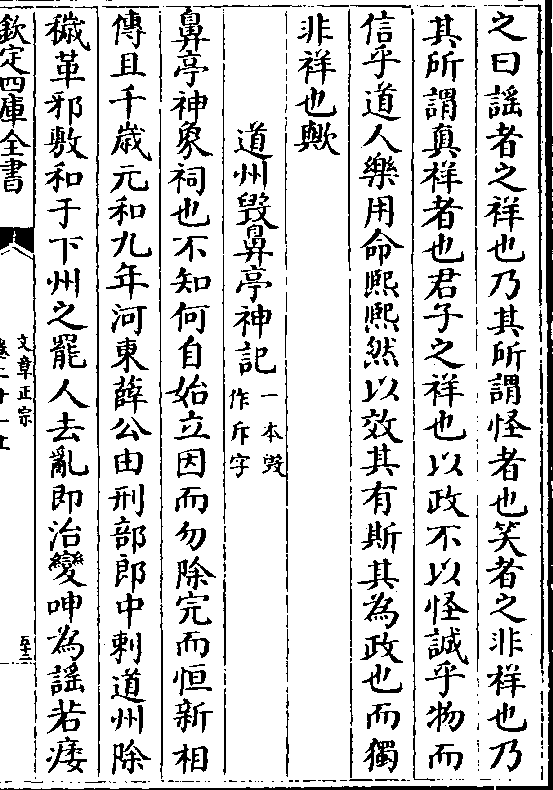 之曰謡者之祥也乃其所謂怪者也笑者之非祥也乃
其所謂真祥者也君子之祥也以政不以怪誠乎物而
信乎道人樂用命熙熙然以效其有斯其為政也而獨
非祥也歟
道州毀鼻亭神記一本毀作斥字
鼻亭神象祠也不知何自始立因而勿除完而恒新相
傳且千歳元和九年河東薛公由刑部郎中刺道州除
穢革邪敷和于下州之罷人去亂即治變呻為謡若痿
欽定四庫全書
文章正宗